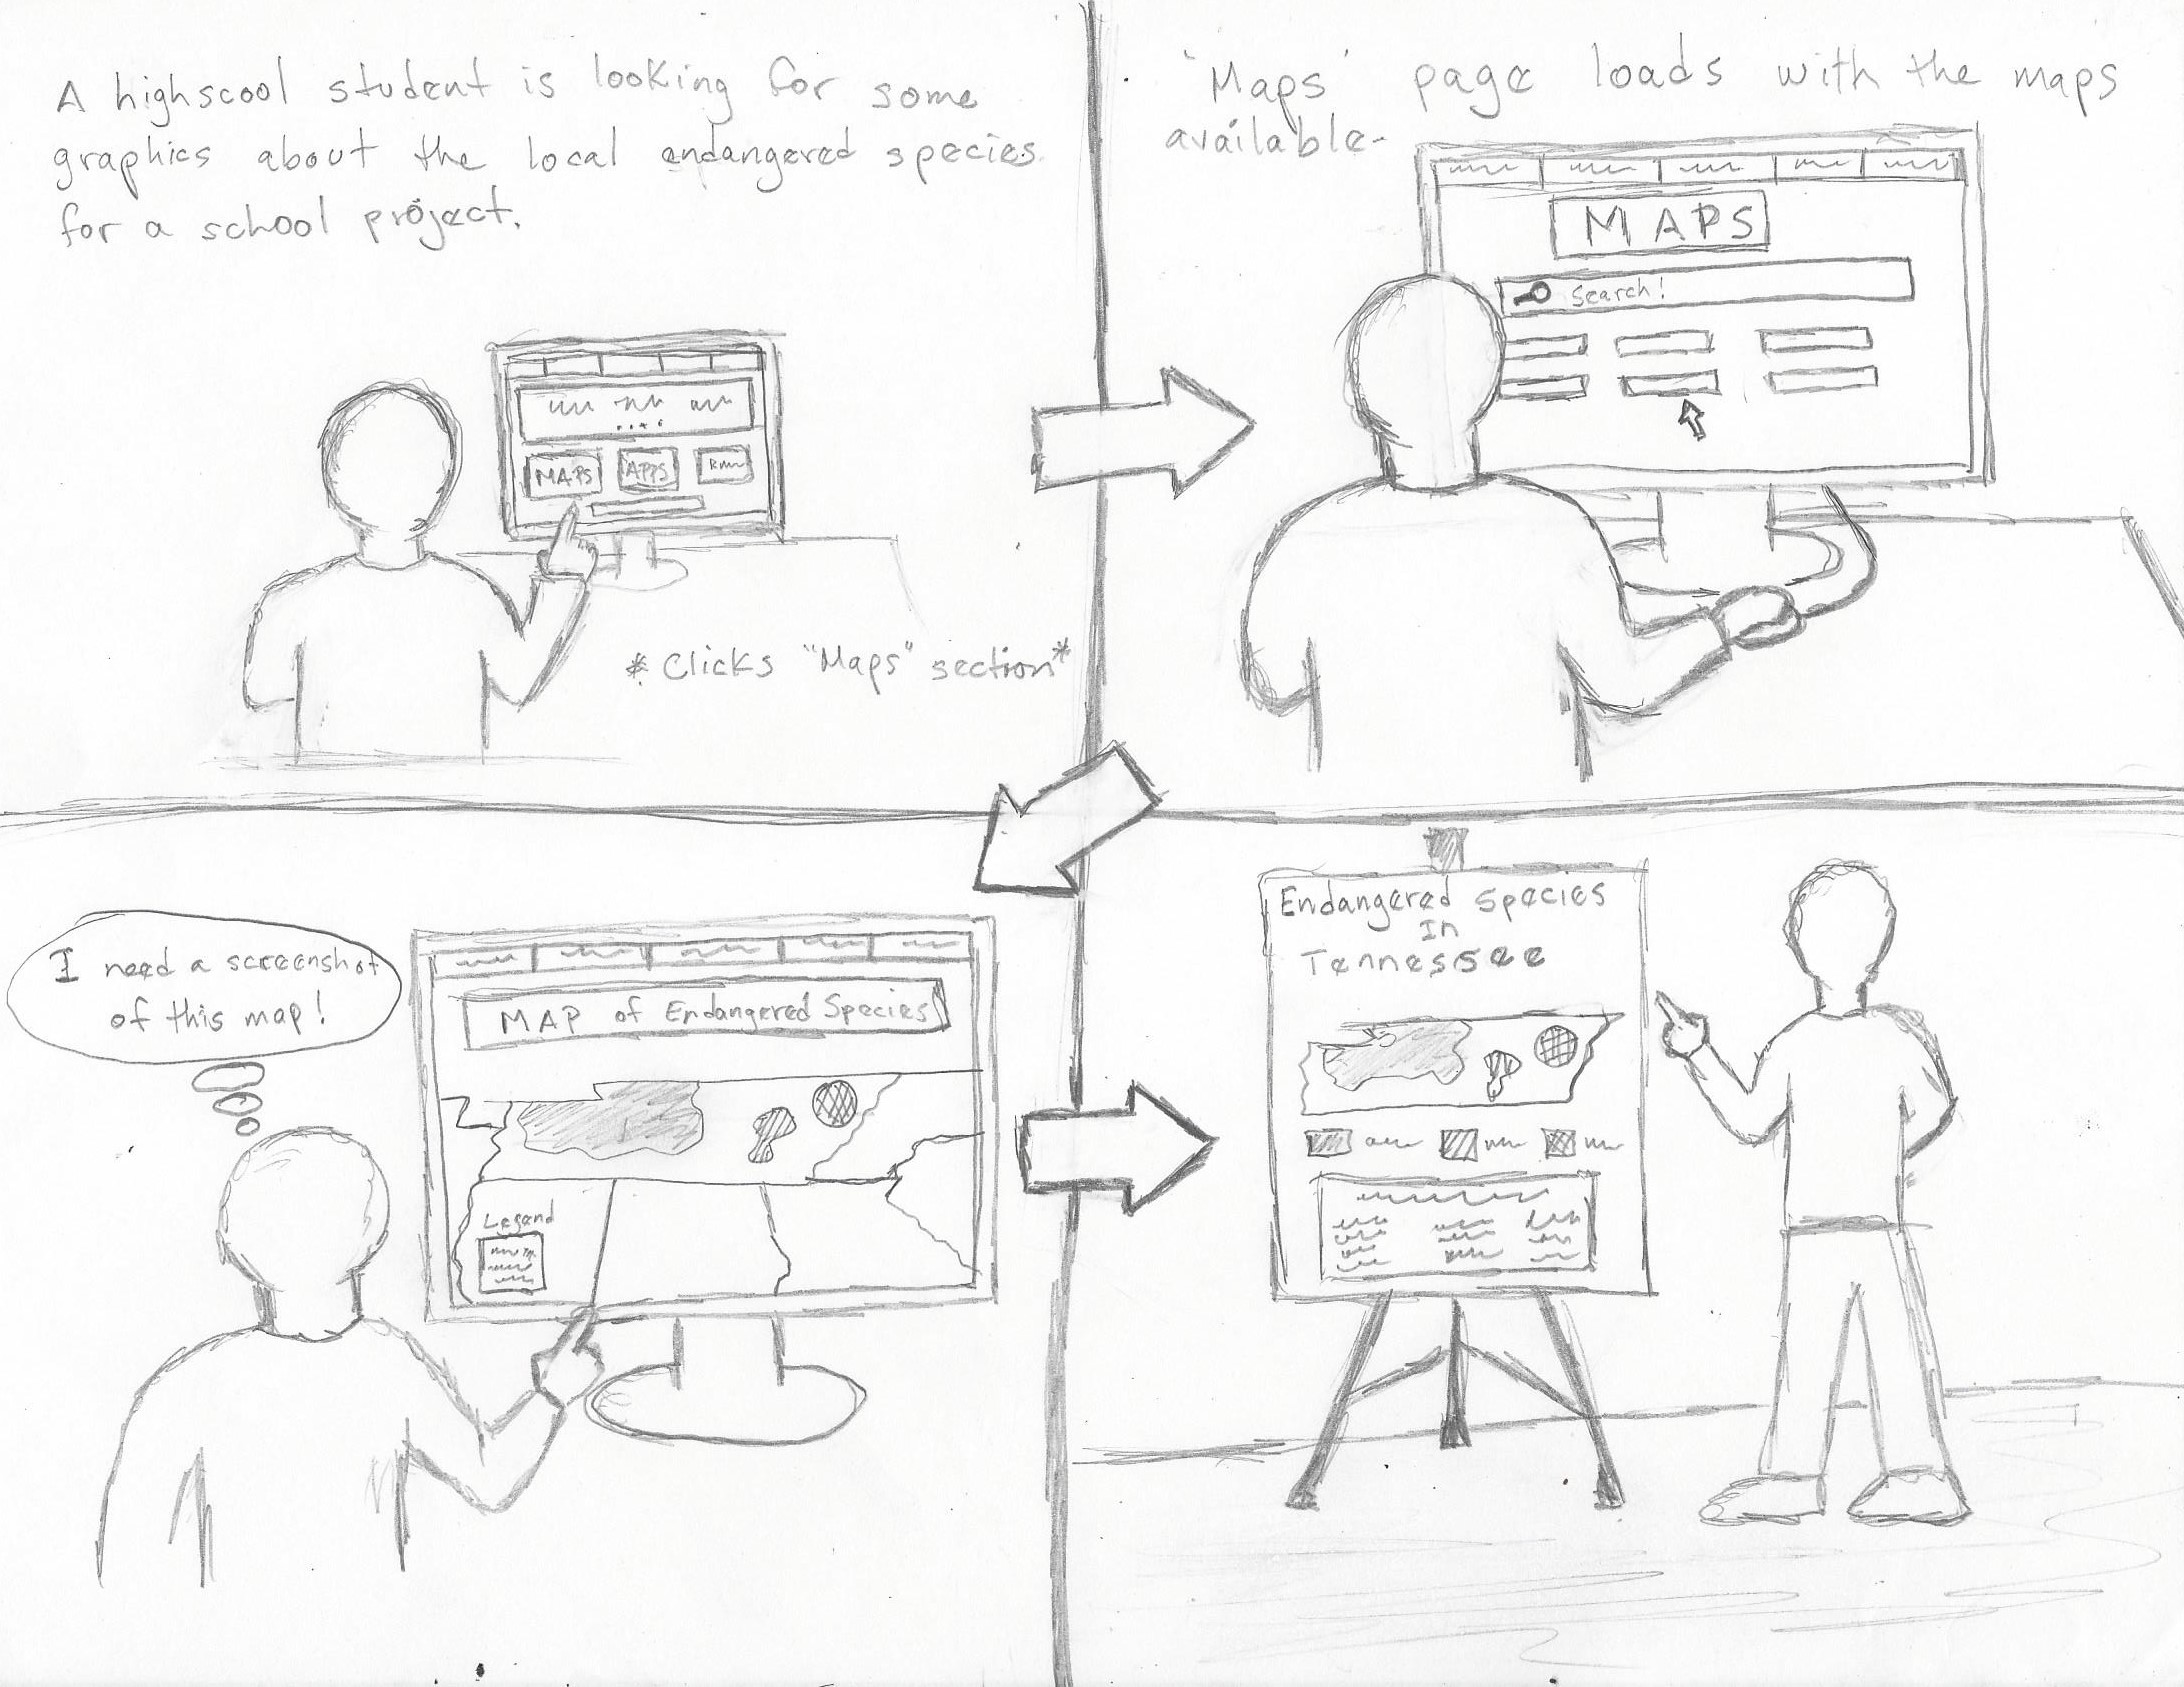 A highscool student is looking for some
graphics about the local endangered species
for a school project.
MAPS APPS
* Clicks "Maps" section*
'Maps' page loads with the maps
available.
MAPS
Search!
I need a screenshot
of this map!
MAP of Endangered Species
Legend
Endangered Species
In
Tennessee